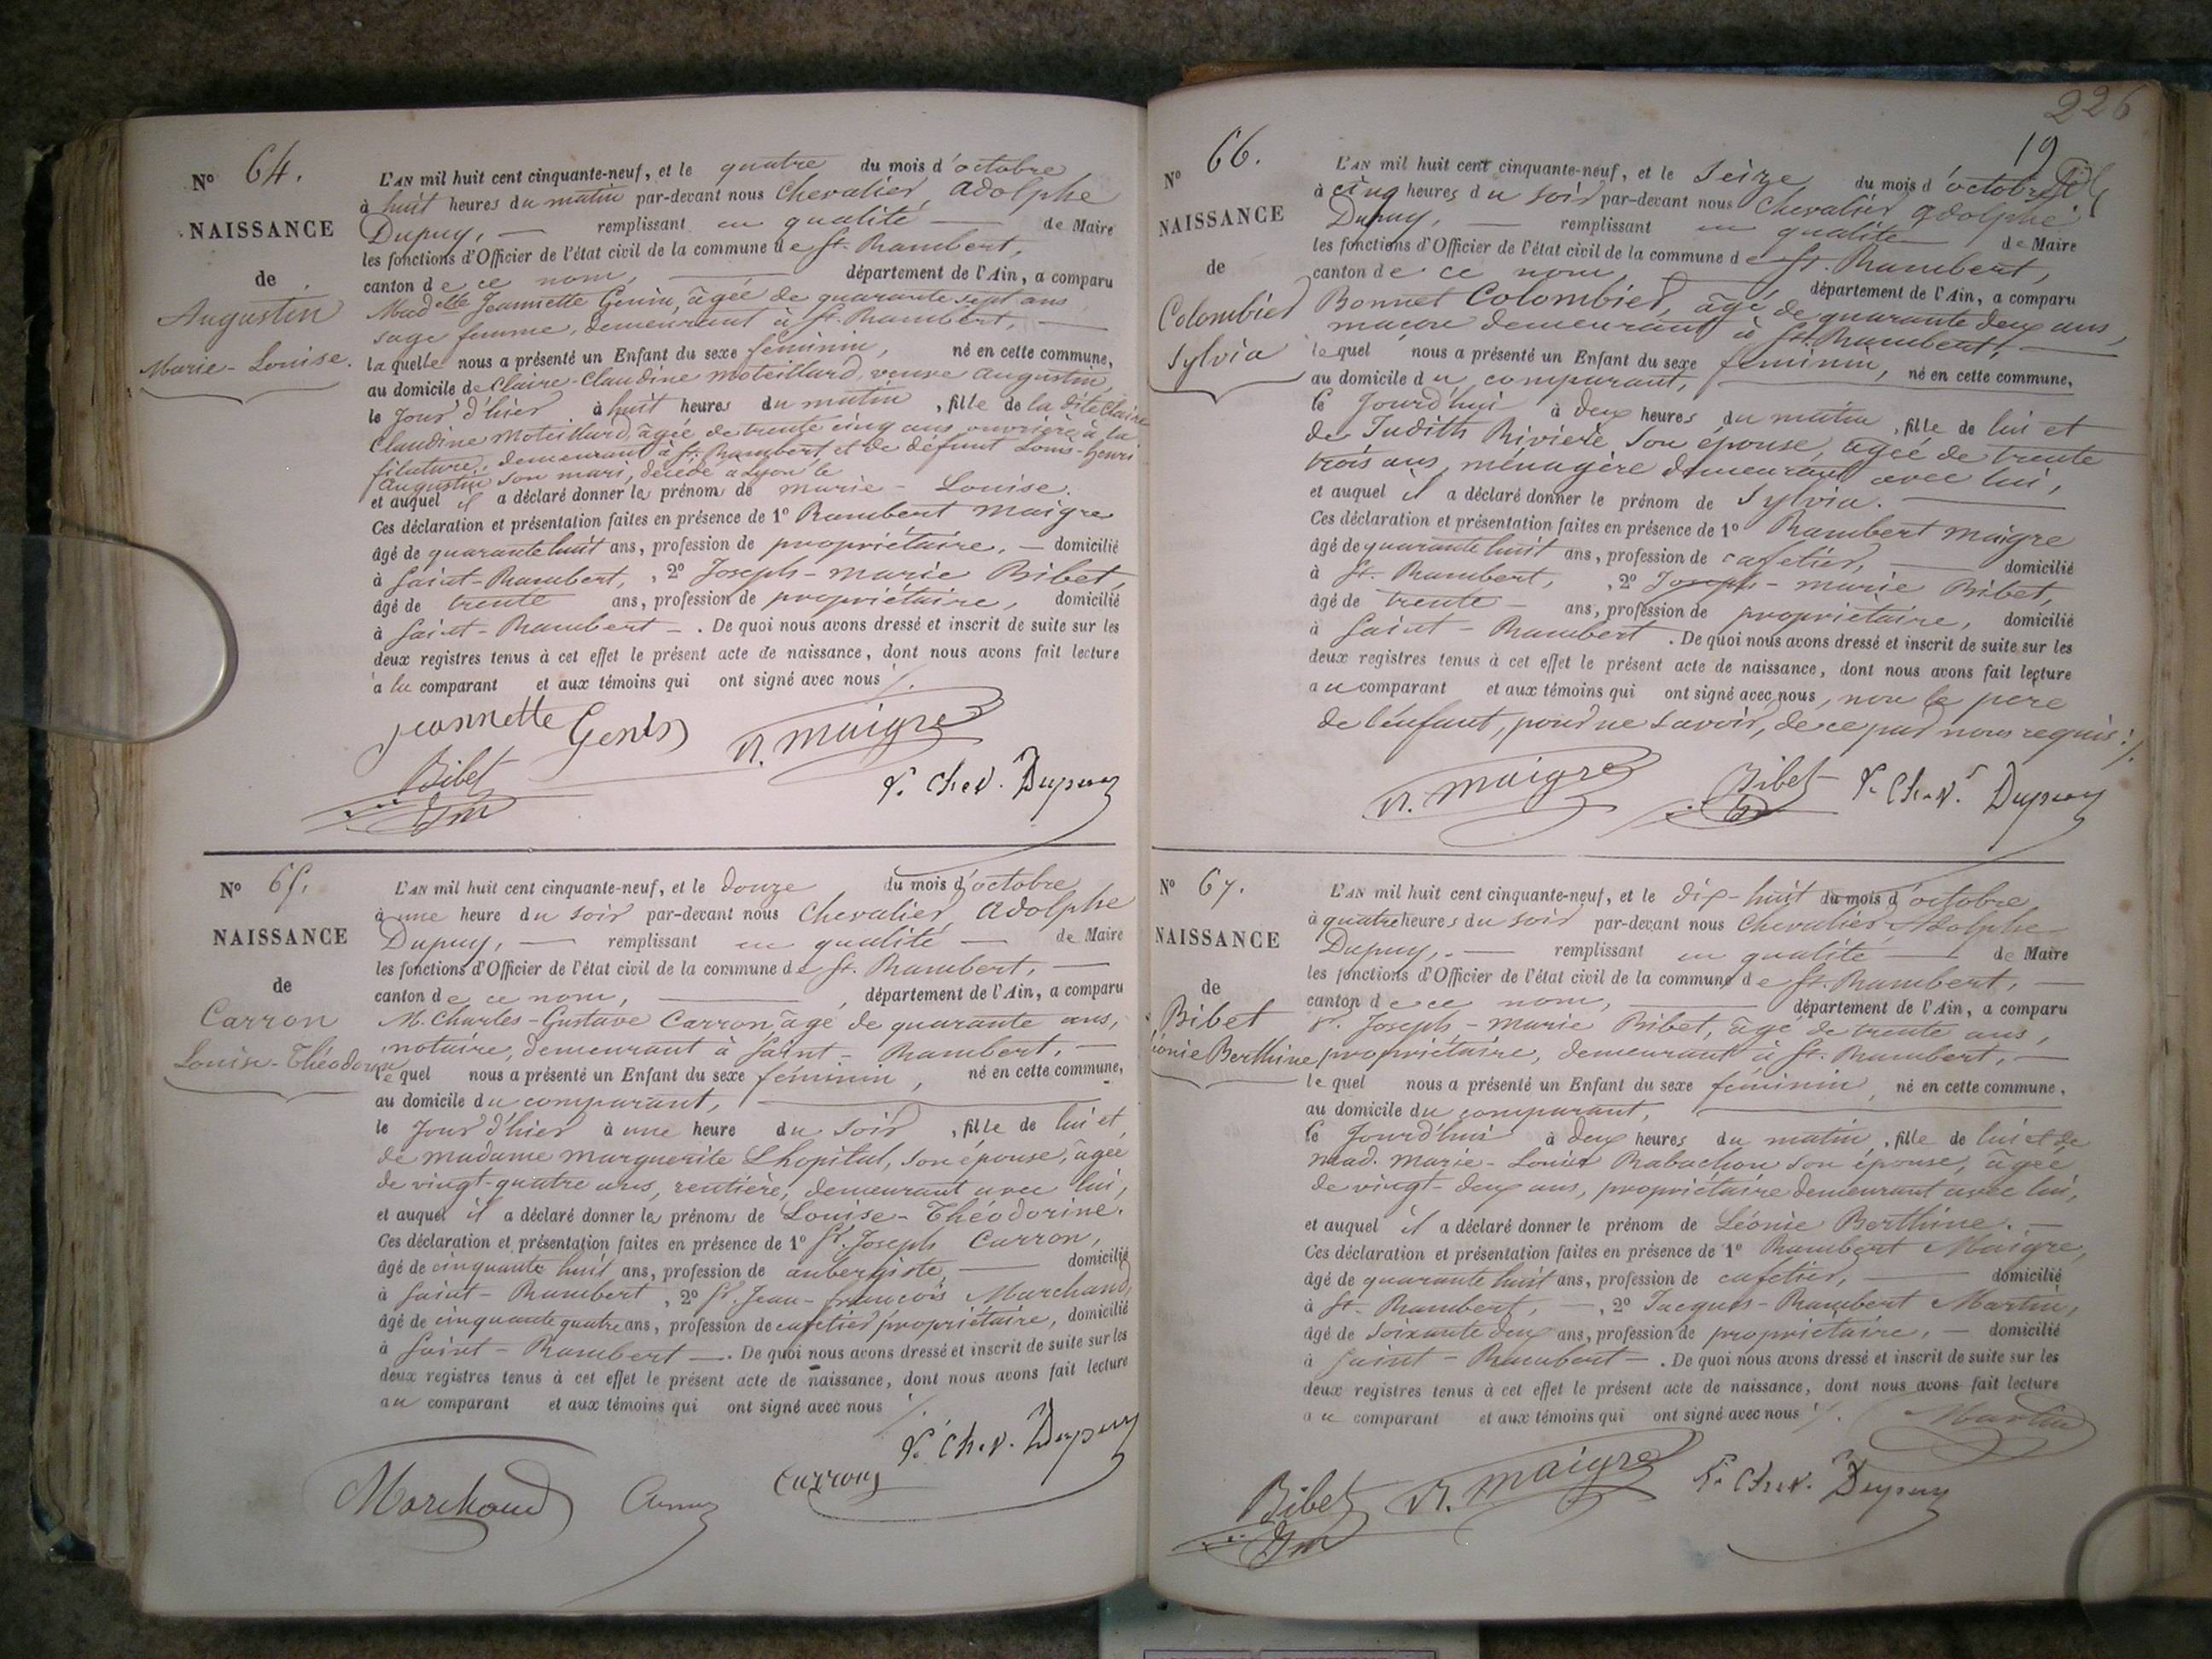 N° 64.
NAISSANCE
de
Augustin
Marie-Louise.
L'AN mil huit cent cinquante-neuf, et le quatre du mois d'octobre
à huit heures du matin par-devant nous Chevalier Adolphe
Dupuy, — remplissant en qualité — de Maire
les fonctions d'Officier de l'état civil de la commune de St. Rambert,
canton de ce nom, — département de l'Ain, a comparu
Madelle Jeannette Genin, âgée de quarante sept ans
sage femme, demeurant à St. Rambert, —
laquelle nous a présenté un Enfant du sexe féminin, né en cette commune,
au domicile de Claire-Claudine Moteillard, veuve Augustin,
le jour d'hier à huit heures du matin, fille de la dite Claire
Claudine Moteillard, âgée de trente cinq ans ouvrière à la
filature, demeurant à St. Rambert, et de défunt Louis-Henri
Augustin son mari, décédé à Lyon le
et auquel il a déclaré donner les prénoms de Marie-Louise.
Ces déclaration et présentation faites en présence de 1° Rambert Maigre
âgé de quarante huit ans, profession de propriétaire, — domicilié
à Saint-Rambert, , 2° Joseph-Marie Bibet,
âgé de trente ans, profession de propriétaire, domicilié
à Saint-Rambert —. De quoi nous avons dressé et inscrit de suite sur les
deux registres tenus à cet effet le présent acte de naissance, dont nous avons fait lecture
à la comparant et aux témoins qui ont signé avec nous ./.
Jeannette Genin R. Maigre
Bibet
Jm
F. Chev. Dupuy
N° 65.
NAISSANCE
de
Carron
Louise-Théodorine
L'AN mil huit cent cinquante-neuf, et le douze du mois d'octobre
à une heure du soir par-devant nous Chevalier Adolphe
Dupuy, — remplissant en qualité — de Maire
les fonctions d'Officier de l'état civil de la commune de St. Rambert, —
canton de ce nom, — , département de l'Ain, a comparu
M. Charles-Gustave Carron, âgé de quarante ans,
notaire, demeurant à Saint-Rambert. —
lequel nous a présenté un Enfant du sexe féminin, né en cette commune,
au domicile du comparant, —
le jour d'hier à une heure du soir, fille de lui et
de madame Marguerite Lhopital, son épouse, âgée
de vingt-quatre ans, rentière, demeurant avec lui,
et auquel il a déclaré donner les prénoms de Louise-Théodorine.
Ces déclaration et présentation faites en présence de 1° Sr. Joseph Carron,
âgé de cinquante huit ans, profession de aubergiste, — domicilié
à Saint-Rambert , 2° Sr. Jean-François Marchand,
âgé de cinquante quatre ans, profession de cafetier propriétaire, domicilié
à Saint-Rambert —. De quoi nous avons dressé et inscrit de suite sur les
deux registres tenus à cet effet le présent acte de naissance, dont nous avons fait lecture
au comparant et aux témoins qui ont signé avec nous ./.
F. Chev. Dupuy
Marchand Carron
226
19
N° 66.
NAISSANCE
de
Colombier
Sylvia
L'AN mil huit cent cinquante-neuf, et le Seize du mois d'octobre
à cinq heures du soir par-devant nous Chevalier Adolphe
Dupuy, — remplissant en qualité — de Maire
les fonctions d'Officier de l'état civil de la commune de St. Rambert,
canton de ce nom, — département de l'Ain, a comparu
Bonnet Colombier, âgé de quarante deux ans,
maçon demeurant à St. Rambert, —
lequel nous a présenté un Enfant du sexe féminin, né en cette commune,
au domicile du comparant, —
le jourd'hui à deux heures du matin, fille de lui et
de Judith Rivière son épouse, âgée de trente
trois ans, ménagère demeurant avec lui,
et auquel il a déclaré donner le prénom de Sylvia. —
Ces déclaration et présentation faites en présence de 1° Rambert Maigre
âgé de quarante huit ans, profession de cafetier, — domicilié
à St. Rambert, , 2° Joseph-Marie Bibet,
âgé de trente — ans, profession de propriétaire, domicilié
à Saint-Rambert. De quoi nous avons dressé et inscrit de suite sur les
deux registres tenus à cet effet le présent acte de naissance, dont nous avons fait lecture
au comparant et aux témoins qui ont signé avec nous, non le père
de l'enfant, pour ne savoir, de ce par nous requis ./.
R. Maigre Bibet F. Chev. Dupuy
N° 67.
NAISSANCE
de
Bibet
Léonie Berthine
L'AN mil huit cent cinquante-neuf, et le dix-huit du mois d'octobre
à quatre heures du soir par-devant nous Chevalier Adolphe
Dupuy, — remplissant en qualité — de Maire
les fonctions d'Officier de l'état civil de la commune de St. Rambert, —
canton de ce nom, — département de l'Ain, a comparu
Sr. Joseph-Marie Bibet, âgé de trente ans,
propriétaire, demeurant à St. Rambert, —
lequel nous a présenté un Enfant du sexe féminin, né en cette commune,
au domicile du comparant, —
le jourd'hui à deux heures du matin, fille de lui et de
Mad. Marie-Louise Rabachon son épouse, âgée
de vingt-deux ans, propriétaire demeurant avec lui,
et auquel il a déclaré donner le prénom de Léonie Berthine. —
Ces déclaration et présentation faites en présence de 1° Rambert Maigre,
âgé de quarante huit ans, profession de cafetier, — domicilié
à St-Rambert, — , 2° Jacques-Rambert Martin,
âgé de soixante deux ans, profession de propriétaire, — domicilié
à Saint-Rambert —. De quoi nous avons dressé et inscrit de suite sur les
deux registres tenus à cet effet le présent acte de naissance, dont nous avons fait lecture
au comparant et aux témoins qui ont signé avec nous ./. Martin
Bibet R. Maigre F. Chev. Dupuy
Jm